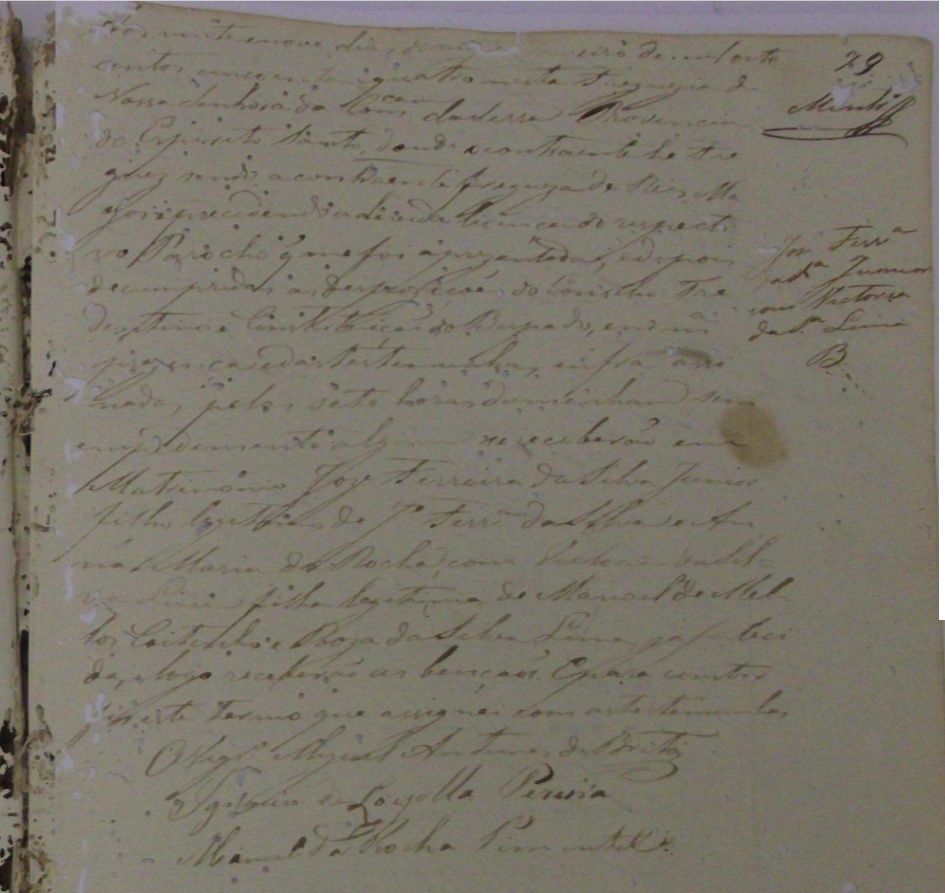 Aos vinte e nove dias do mez de Janeiro de mil oito
centos e cincoenta e quatro nesta Freguezia de
Nossa Senhora da Conceicam da Serra Provincia
do Espirito Santo, donde o contraente he fre
guez sendo a contraente fregueza de Reis Ma
gos, e precedendo a devida licença do respecti
vo Parocho q me foi aprezentada, e depois
de cumpridas as desposicoens do Concilio Tre
dentino e Constituição do Bispado, em m.
prezença e das testemunhas infra assi
nadas, pelas sete horas da menham sem
empedimento algum se receberão em
Matrimonio Joze Ferreira da Silva Junior
filho legitimo de Je Ferra da Silva e An
na Maria da Rocha, com Victoria da Sil-
va Lima filha legitima de Manoel de Mel-
lo Coitinho e Roza da Silva Lima, ja faleci
da, e logo receberão as bençaos. E para constar
fiz este termo que assignei com as testemunhas
O Vigro Miguel Antunes de Brito
Ignacio de Loyolla Pereira
Manoel da Rocha Pimentel
79
Joze Ferra
da Sa Junior
com Victoria
da Sa Lima
B.